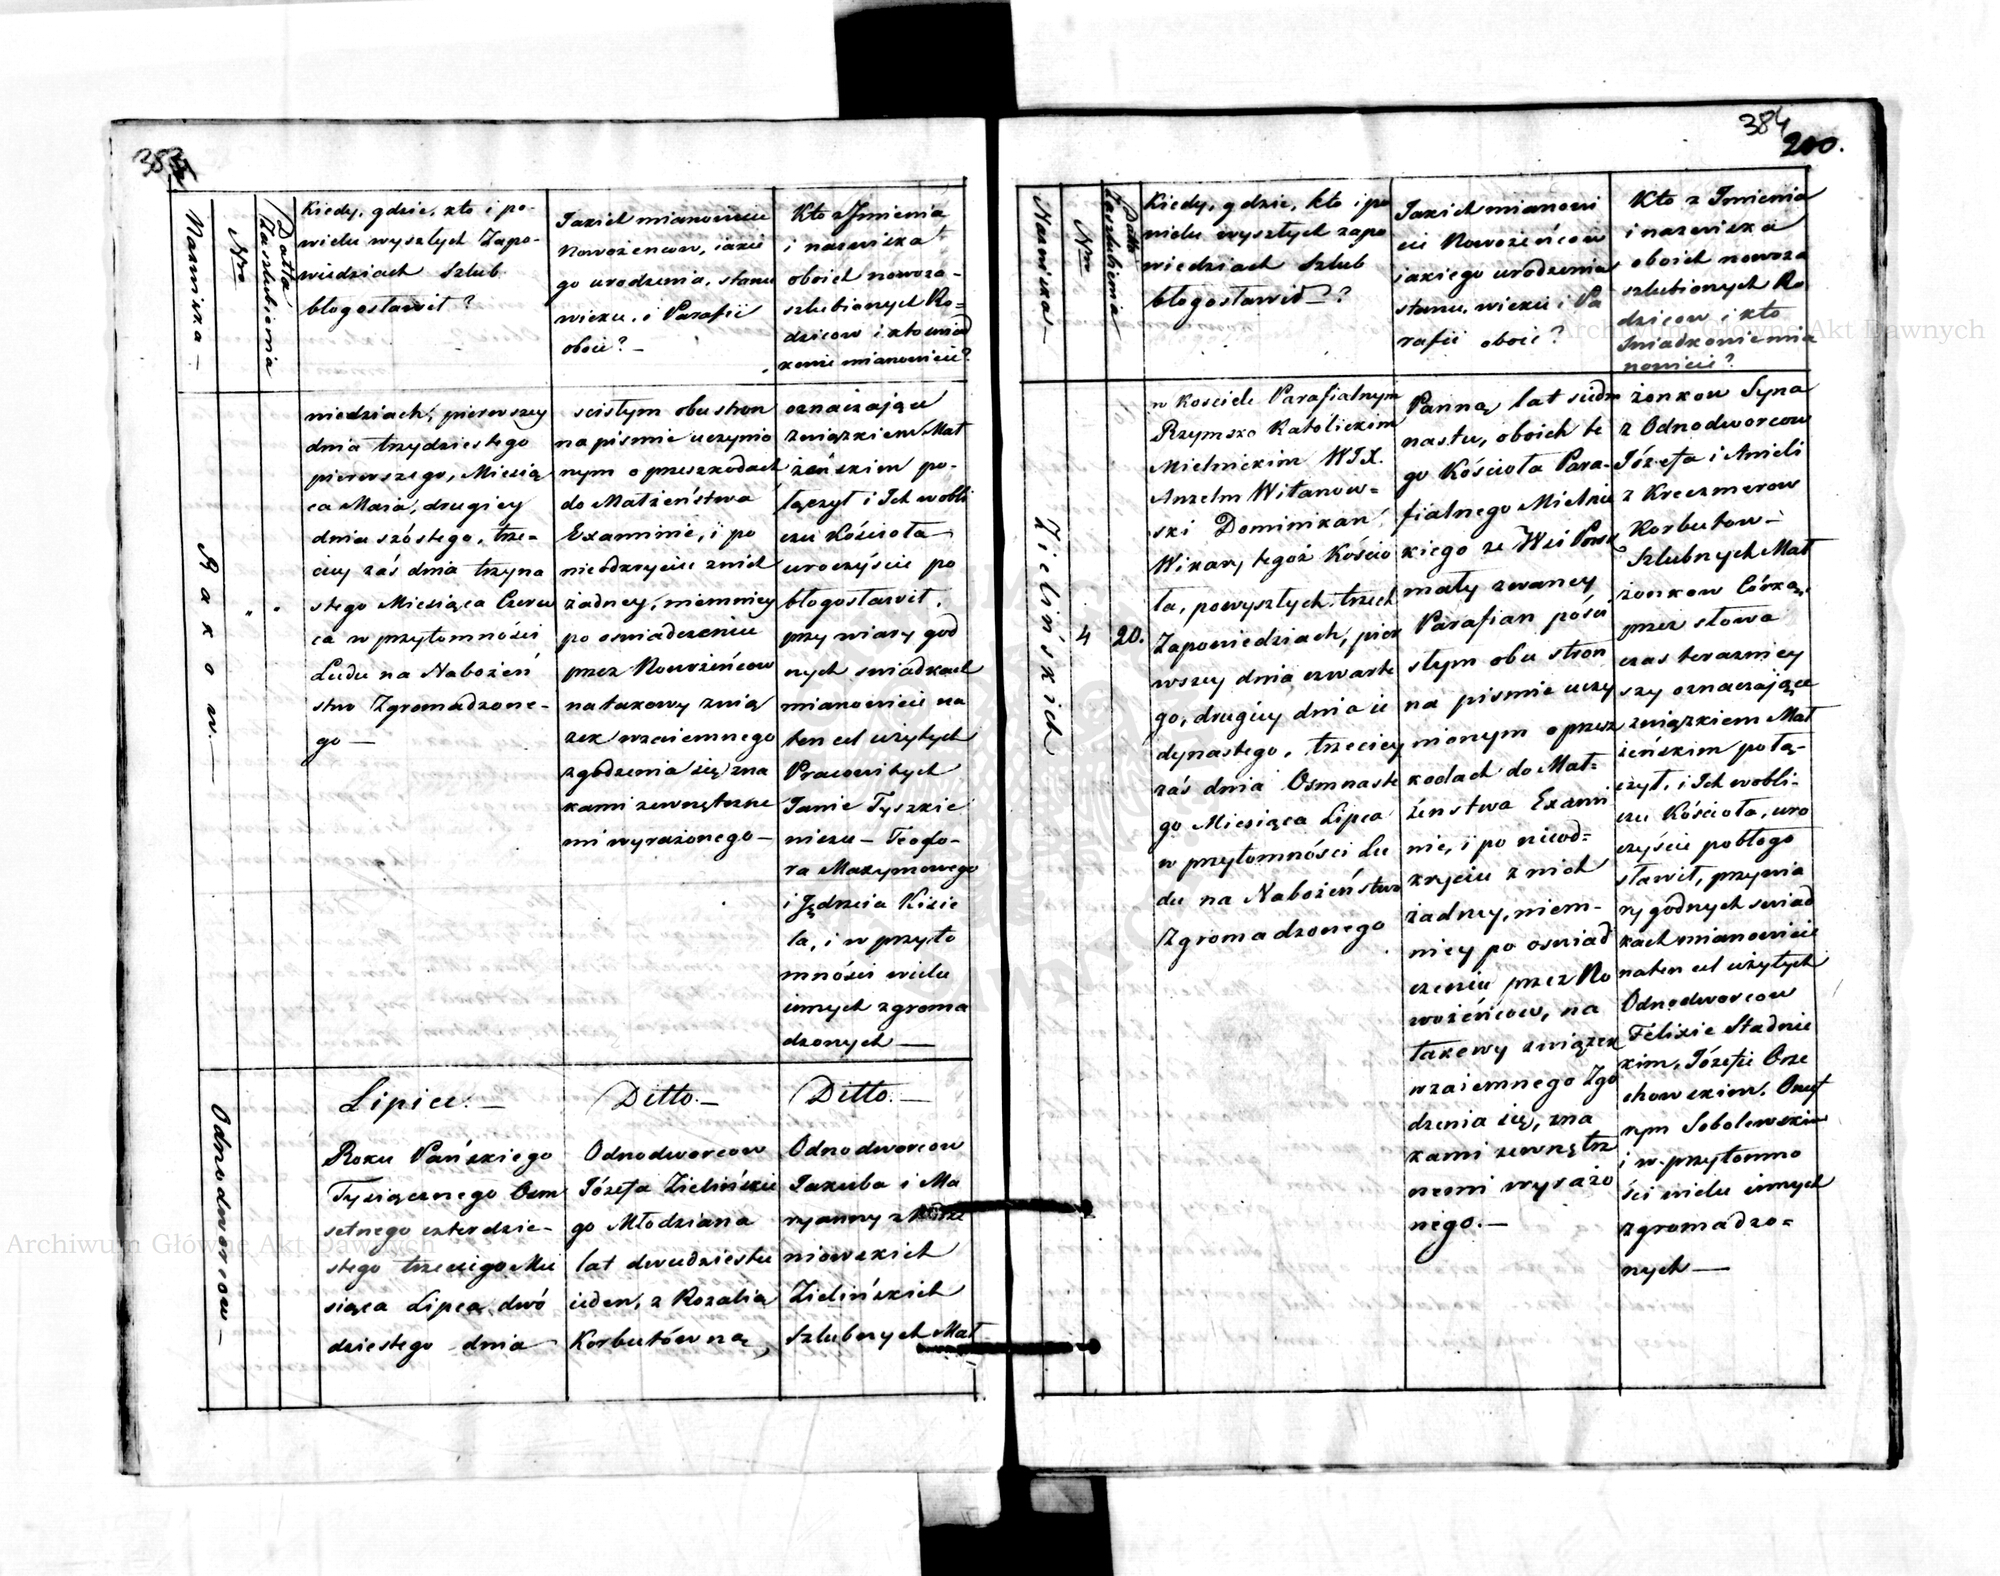 383
Nazwiska —
Nro
Datta Zaszlubienia
Kiedy, gdzie, kto i po
wielu wyszłych Zapo-
wiedziach Szlub
błogosławił?
Jakich mianowicie
Nowożeńcow, iakie
go urodzenia, stanu
wieku, i Parafii
oboie? —
Kto z Imienia
i nazwiska
oboich nowoza-
szlubionych Ro=
dzicow i kto świad
kowie mianowicie?
Żakow. —
" "
niedziach; pierwszey
dnia trzydziestego
pierwszego, Miesią
ca Maia, drugiey
dnia szóstego, trze=
ciey záś dnia trzyna
stego Miesiąca Czerw
ca w przytomności
Ludu na Nabożeń
stwo Zgromadzone-
go —
scisłym obu stron
na pismie uczynio
nym o przeszkodach
do Małżeństwa
Examinie, i po
nieodkryciu z nich
żadney, niemniey
po oswiadczeniu
przez Nowożeńcow
na takowy zwią
zek wzaiemnego
zgodzenia się zna
kami zewnętrzne
mi wyrażonego —
oznaczaiące
związkiem Mał
żeńskim po-
łączył i Ich w obli
czu Kościoła
uroczyście po
błogosławił,
przy wiary god
nych swiadkach
mianowicie na
ten cel użytych
Pracowitych
Janie Tyszkie
wiczu — Teodo-
ra Maxymowego
i Jędrzeia Kisie
la, i w przyto
mności wielu
innych zgroma
dzonych —
Odnodworcow —
Lipiec. —
Roku Pańskiego
Tysiącznego Osm
setnego czterdzie-
stego trzeciego Mie
siąca Lipca dwó
dziestego dnia
Ditto. —
Odnodworcow
Józefa Zielińskie
go Młodziana
lat dwudziestu
ieden, z Rozalią
Korbutówną,
Ditto. —
Odnodworcow
Jakuba i Ma
ryanny z
niowskich
Zielińskich
Szlubnych Mał
384
200.
Nazwiska —
Nro
Datta Zaszlubienia
Kiedy, gdzie, kto i po
wielu wyszłych zapo
wiedziach Szlub
błogosławił?
Jakich mianowi
cie Nowożeńcow
iakiego urodzenia
stanu, wieku i Pa
rafii oboie?
Kto z Imienia
i nazwiska
oboich nowoza
szlubionych Ro
dzicow i kto
swiadkowie mia
nowicie?
Zielińskich
4
20.
w Kosciele Parafialnym
Rzymsko Katolickim
Mielnickim WJX.
Anzelm Witanow=
ski Dominikan
Wikary tegoż Kościo
ła, po wyszłych trzech
Zapowiedziach, pier
wszey dnia czwarte
go, drugiey dnia ie
dynastego, trzeciey
záś dnia Osmnaste
go Miesiąca Lipca
w przytomności Lu
du na Nabożeństwo
Zgromadzonego
Panną lat siedm
nastu, oboich te
go Kościoła Para-
fialnego Mielnic
kiego ze Wsi
mały zwaney
Parafian po sci
słym obu stron
na pismie uczy
nionym o przesz
kodach do Mał=
żenstwa Exami
nie, i po nieod=
kryciu z nich
żadney, niem-
niey po oswiad
czeniu przez No
wożeńcow, na
takowy związek
wzaiemnego Zgo
dzenia się, zna
kami zewnętrz
nemi wyrażo
nego. —
żonkow Syna
z Odnodworcow
Józefa i Anieli
z Kreczmerow
Korbutow —
Szlubnych Mał
żonkow Córką,
przez słowa
czas teraźniey
szy oznaczaiące
związkiem Mał
żeńskim połą-
czył, i Ich w obli-
czu Kościoła, uro
czyście pobłogo
sławił, przy wia
ry godnych swiad
kach mianowicie
na ten cel użytych
Odnodworcow
Felixie Stadnic
kim, Józefie Orze
chowskim, Onuf
rym Sobolewskim
i w przytomno
ści wielu innych
zgromadzo=
nych —
Archiwum Główne Akt Dawnych
Archiwum Główne Akt Dawnych